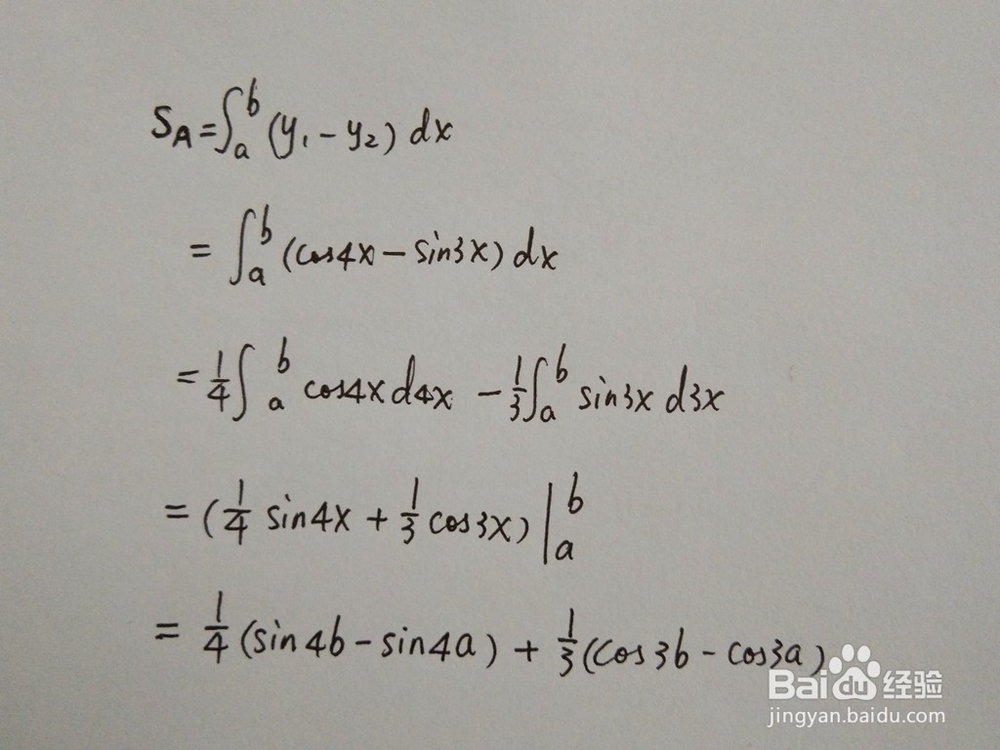 S_A = ∫_a^b (y₁ - y₂) dx
= ∫_a^b (cos4x - sin3x) dx
= 1/4 ∫_a^b cos4x d4x - 1/3 ∫_a^b sin3x d3x
= (1/4 sin4x + 1/3 cos3x) |_a^b
= 1/4 (sin4b - sin4a) + 1/3 (cos3b - cos3a)
Baidu 经验
jingyan.baidu.com